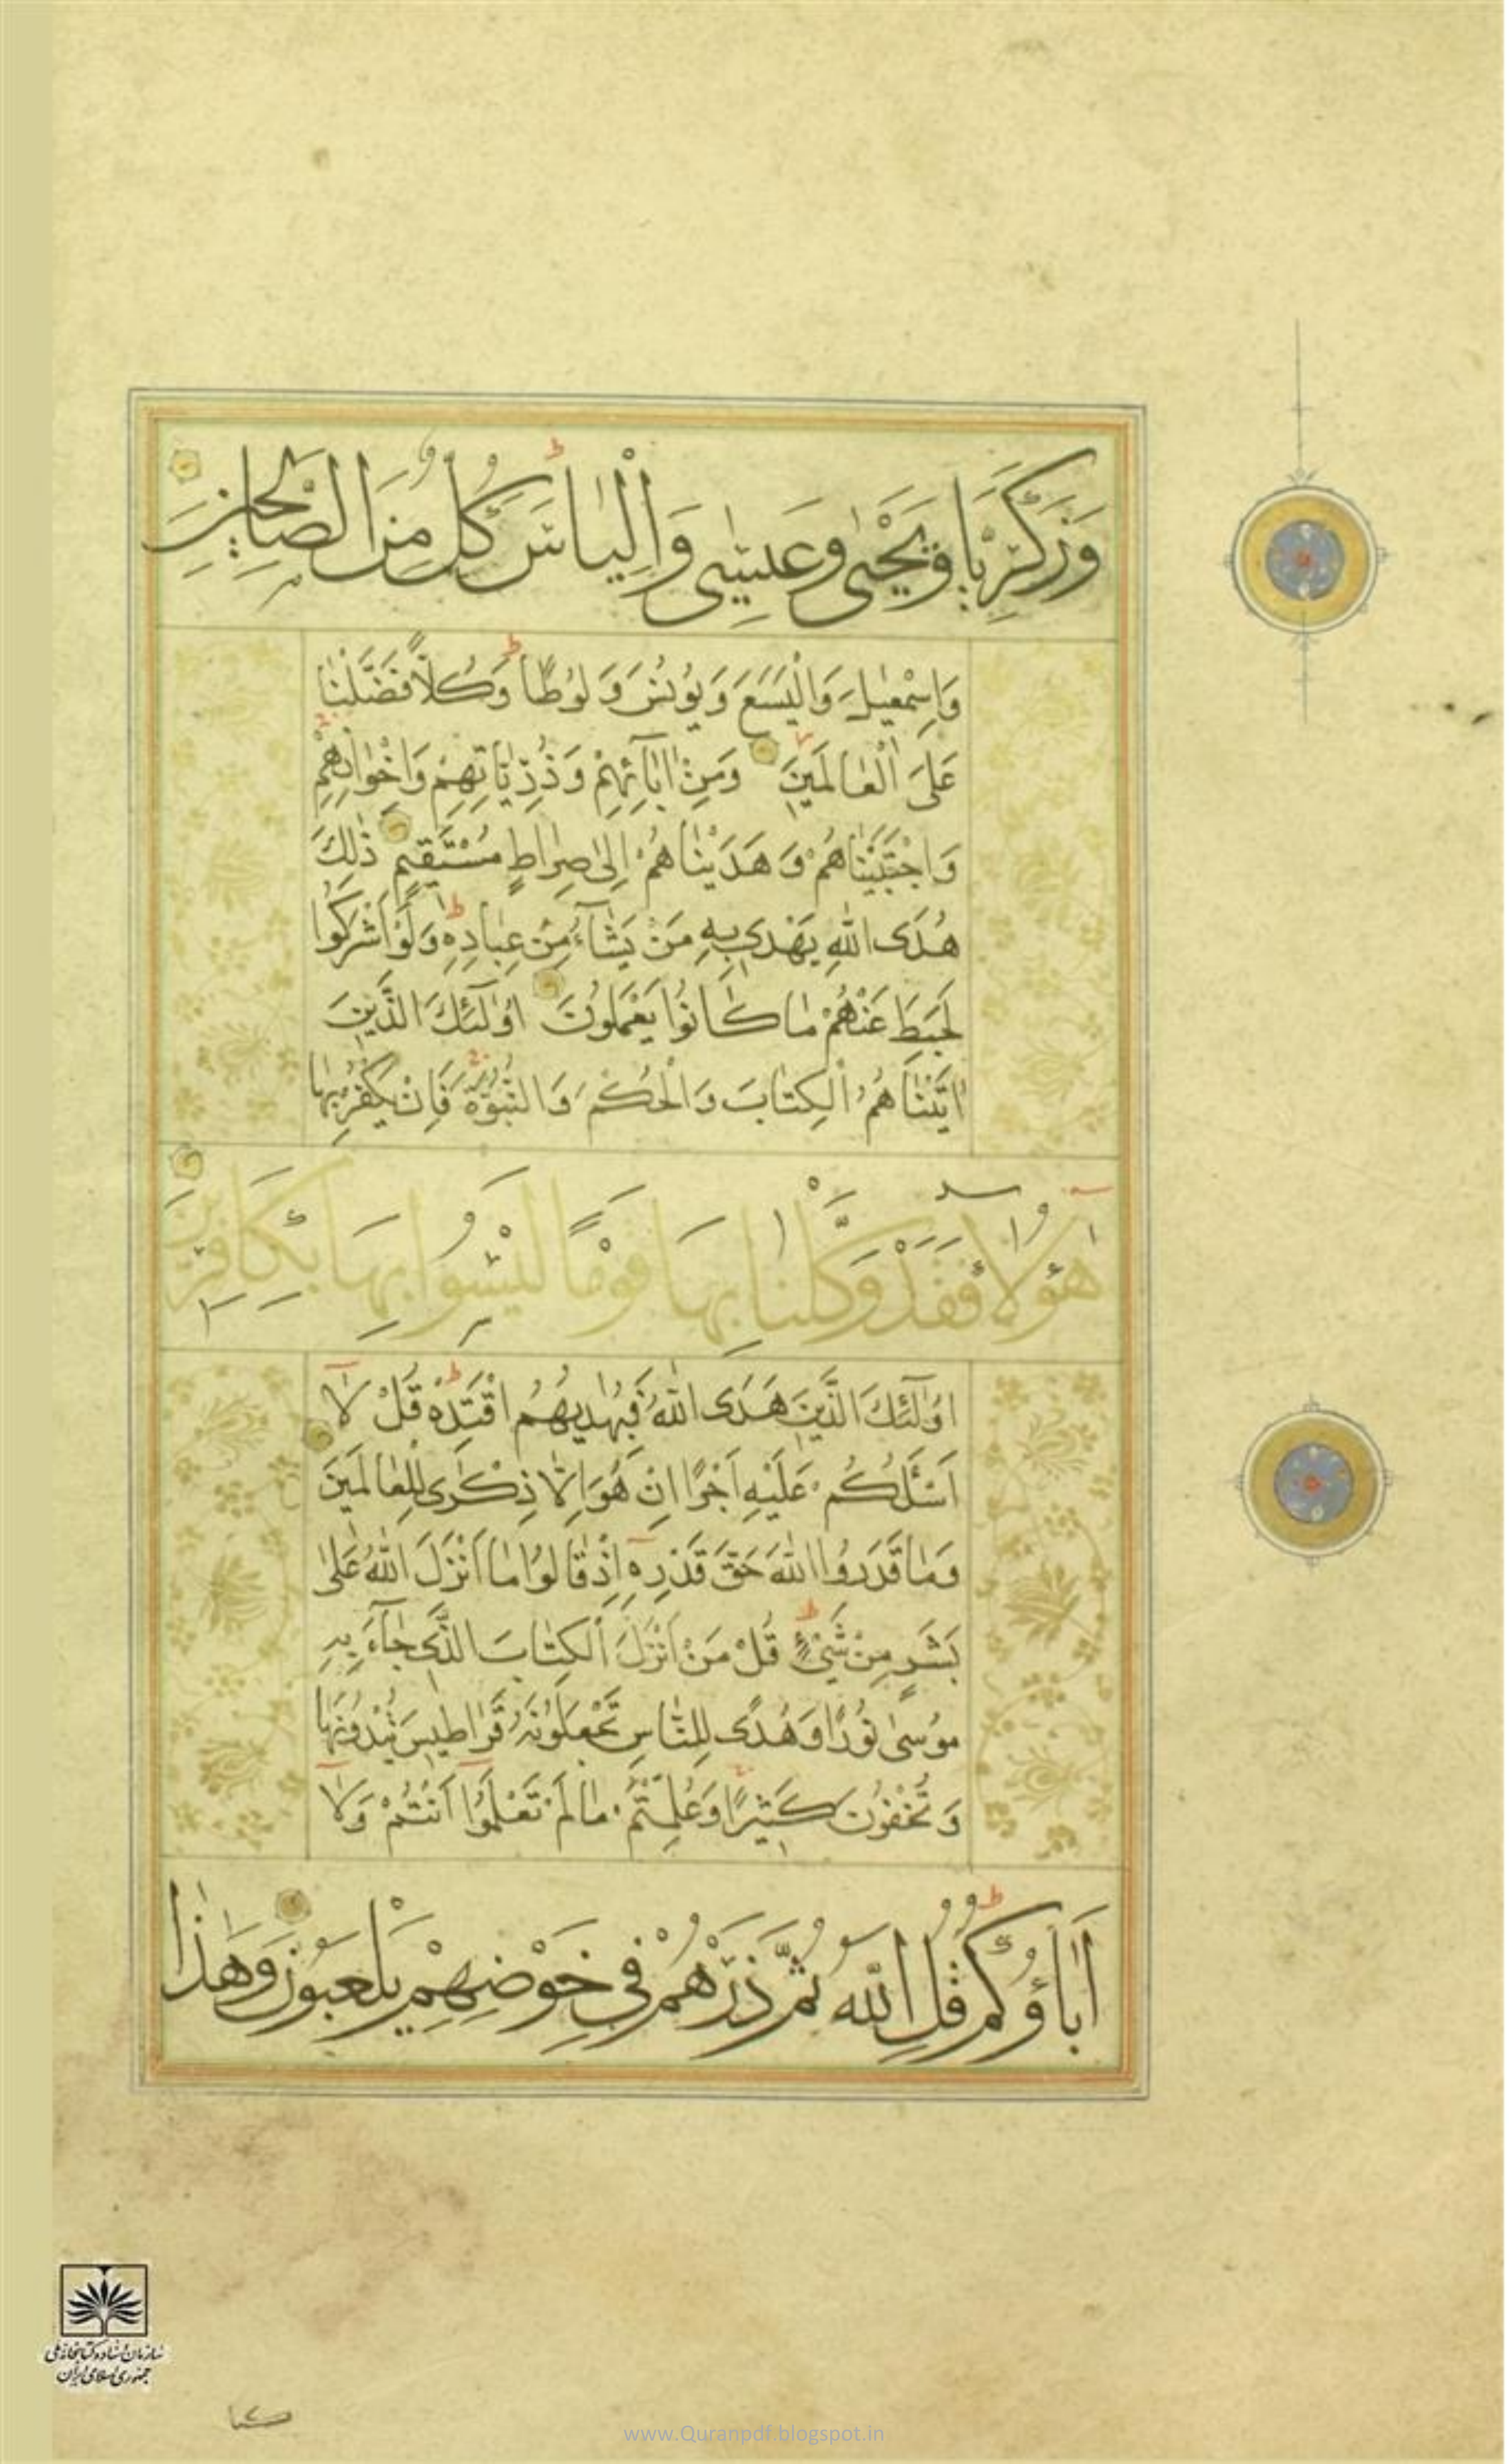 وَزَكَرِيَّا وَيَحْيٰى وَعِيسٰى وَاِلْيَاسَ كُلٌّ مِنَ الصَّالِحِينَ
وَاِسْمٰعِيلَ وَالْيَسَعَ وَيُونُسَ وَلُوطًا وَكُلًّا فَضَّلْنَا
عَلَى الْعَالَمِينَ وَمِنْ اٰبَآئِهِمْ وَذُرِّيَّاتِهِمْ وَاِخْوَانِهِمْ
وَاجْتَبَيْنَاهُمْ وَهَدَيْنَاهُمْ اِلٰى صِرَاطٍ مُسْتَقِيمٍ ذٰلِكَ
هُدَى اللّٰهِ يَهْدِي بِهِ مَنْ يَشَآءُ مِنْ عِبَادِهِ وَلَوْ اَشْرَكُوا
لَحَبِطَ عَنْهُمْ مَا كَانُوا يَعْمَلُونَ اُولٰٓئِكَ الَّذِينَ
اٰتَيْنَاهُمُ الْكِتَابَ وَالْحُكْمَ وَالنُّبُوَّةَ فَاِنْ يَكْفُرْ بِهَا
هٰٓؤُلَآءِ فَقَدْ وَكَّلْنَا بِهَا قَوْمًا لَيْسُوا بِهَا بِكَافِرِينَ
اُولٰٓئِكَ الَّذِينَ هَدَى اللّٰهُ فَبِهُدٰيهُمُ اقْتَدِهْ قُلْ لَا
اَسْئَلُكُمْ عَلَيْهِ اَجْرًا اِنْ هُوَ اِلَّا ذِكْرٰى لِلْعَالَمِينَ
وَمَا قَدَرُوا اللّٰهَ حَقَّ قَدْرِهِ اِذْ قَالُوا مَا اَنْزَلَ اللّٰهُ عَلٰى
بَشَرٍ مِنْ شَيْءٍ قُلْ مَنْ اَنْزَلَ الْكِتَابَ الَّذِي جَآءَ بِهِ
مُوسٰى نُورًا وَهُدًى لِلنَّاسِ تَجْعَلُونَهُ قَرَاطِيسَ تُبْدُونَهَا
وَتُخْفُونَ كَثِيرًا وَعُلِّمْتُمْ مَا لَمْ تَعْلَمُوا اَنْتُمْ وَلَا
اٰبَاؤُكُمْ قُلِ اللّٰهُ ثُمَّ ذَرْهُمْ فِي خَوْضِهِمْ يَلْعَبُونَ وَهٰذَا
سازمان اسناد و کتابخانه ملی
جمهوری اسلامی ایران
www.Quranpdf.blogspot.in